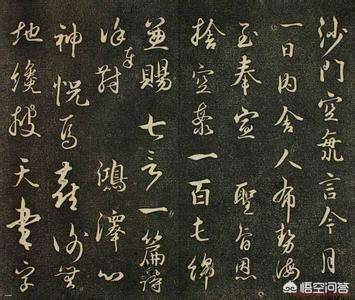 沙門空海言今月
一日內舍人布勢海
至奉宣 聖旨恩
捨空海一百屯綿
兼賜七言一篇詩
對 鴻澤心
神悅焉
地纔披天書字
悟空问答